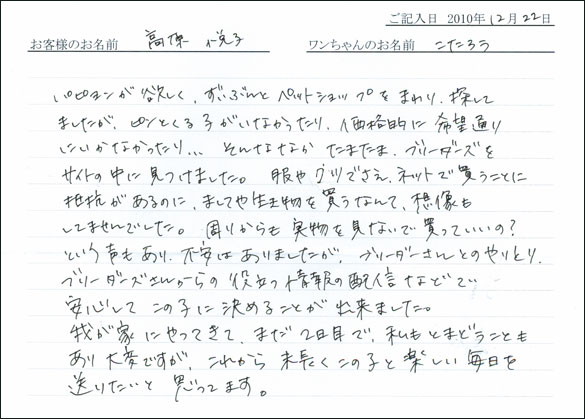 ご記入日 2010年12月22日
お客様のお名前 高原 悦子 ワンちゃんのお名前 こたろう
パピヨンが欲しく、ずいぶんとペットショップをまわり、探して
ましたが、ピンとくる子がいなかったり、価格的に希望通り
にいかなかったり... そんななか たまたま、ブリーダーズを
サイトの中に見つけました。服やグッズでさえ、ネットで買うことに
抵抗があるのに、ましてや生き物を買うなんて、想像も
してませんでした。周りからも実物を見ないで買っていいの?
という声もあり、不安はありましたが、ブリーダーさんとのやりとり、
ブリーダーズさんからの役立つ情報の配信などで
安心してこの子に決めることが出来ました。
我が家にやってきて、まだ2日目で、私もとまどうことも
あり大変ですが、これから末長くこの子と楽しい毎日を
送りたいと思ってます。